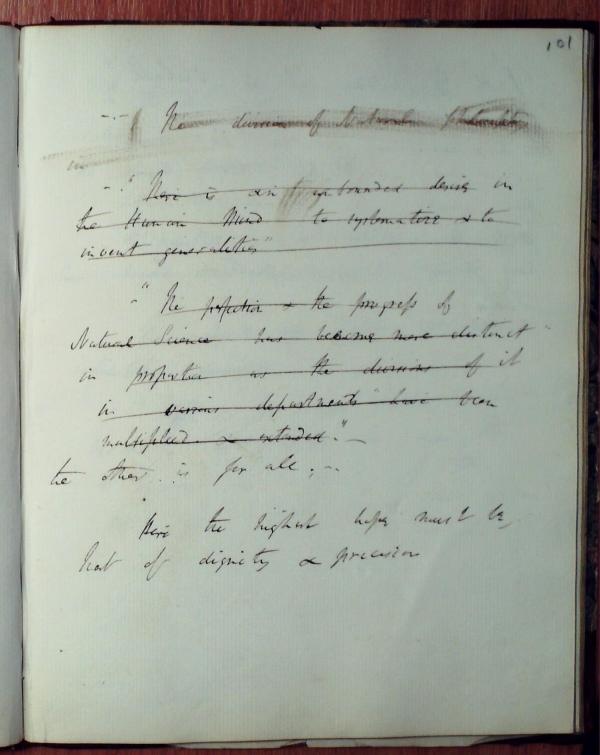 101
The division of Natural
in
"There is an unbounded desire in
the Human Mind to systematize & to
invent generalities"
"The perfection & the progress of
Natural Science has become more distinct
in proportion as the divisions of it
in various departments have been
multiplied & extended."
the other is for all.
Here the highest hope must be,
that of dignity & precision